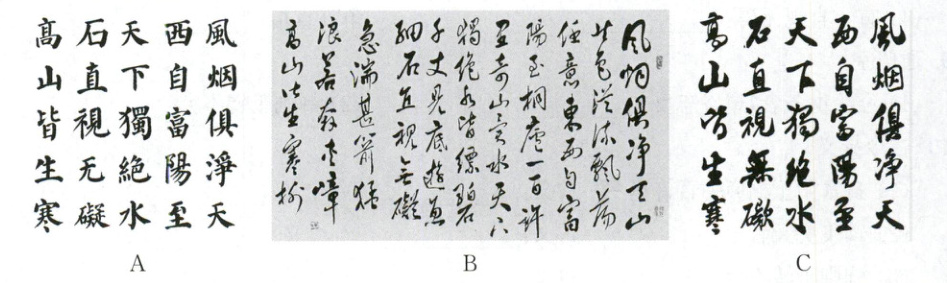 風烟俱淨天
西自富陽至
天下獨絕水
石直視无礙
高山皆生寒
A
風烟俱净天山
共色從流飄蕩
任意東西自富
陽至桐廬一百許
里奇山异水天下
獨絕水皆縹碧
千丈見底遊魚
細石直視無礙
急湍甚箭猛
浪若奔夹嶂
高山皆生寒樹
B
風烟俱净天
西自富陽至
天下獨絕水
石直視無礙
高山皆生寒
C